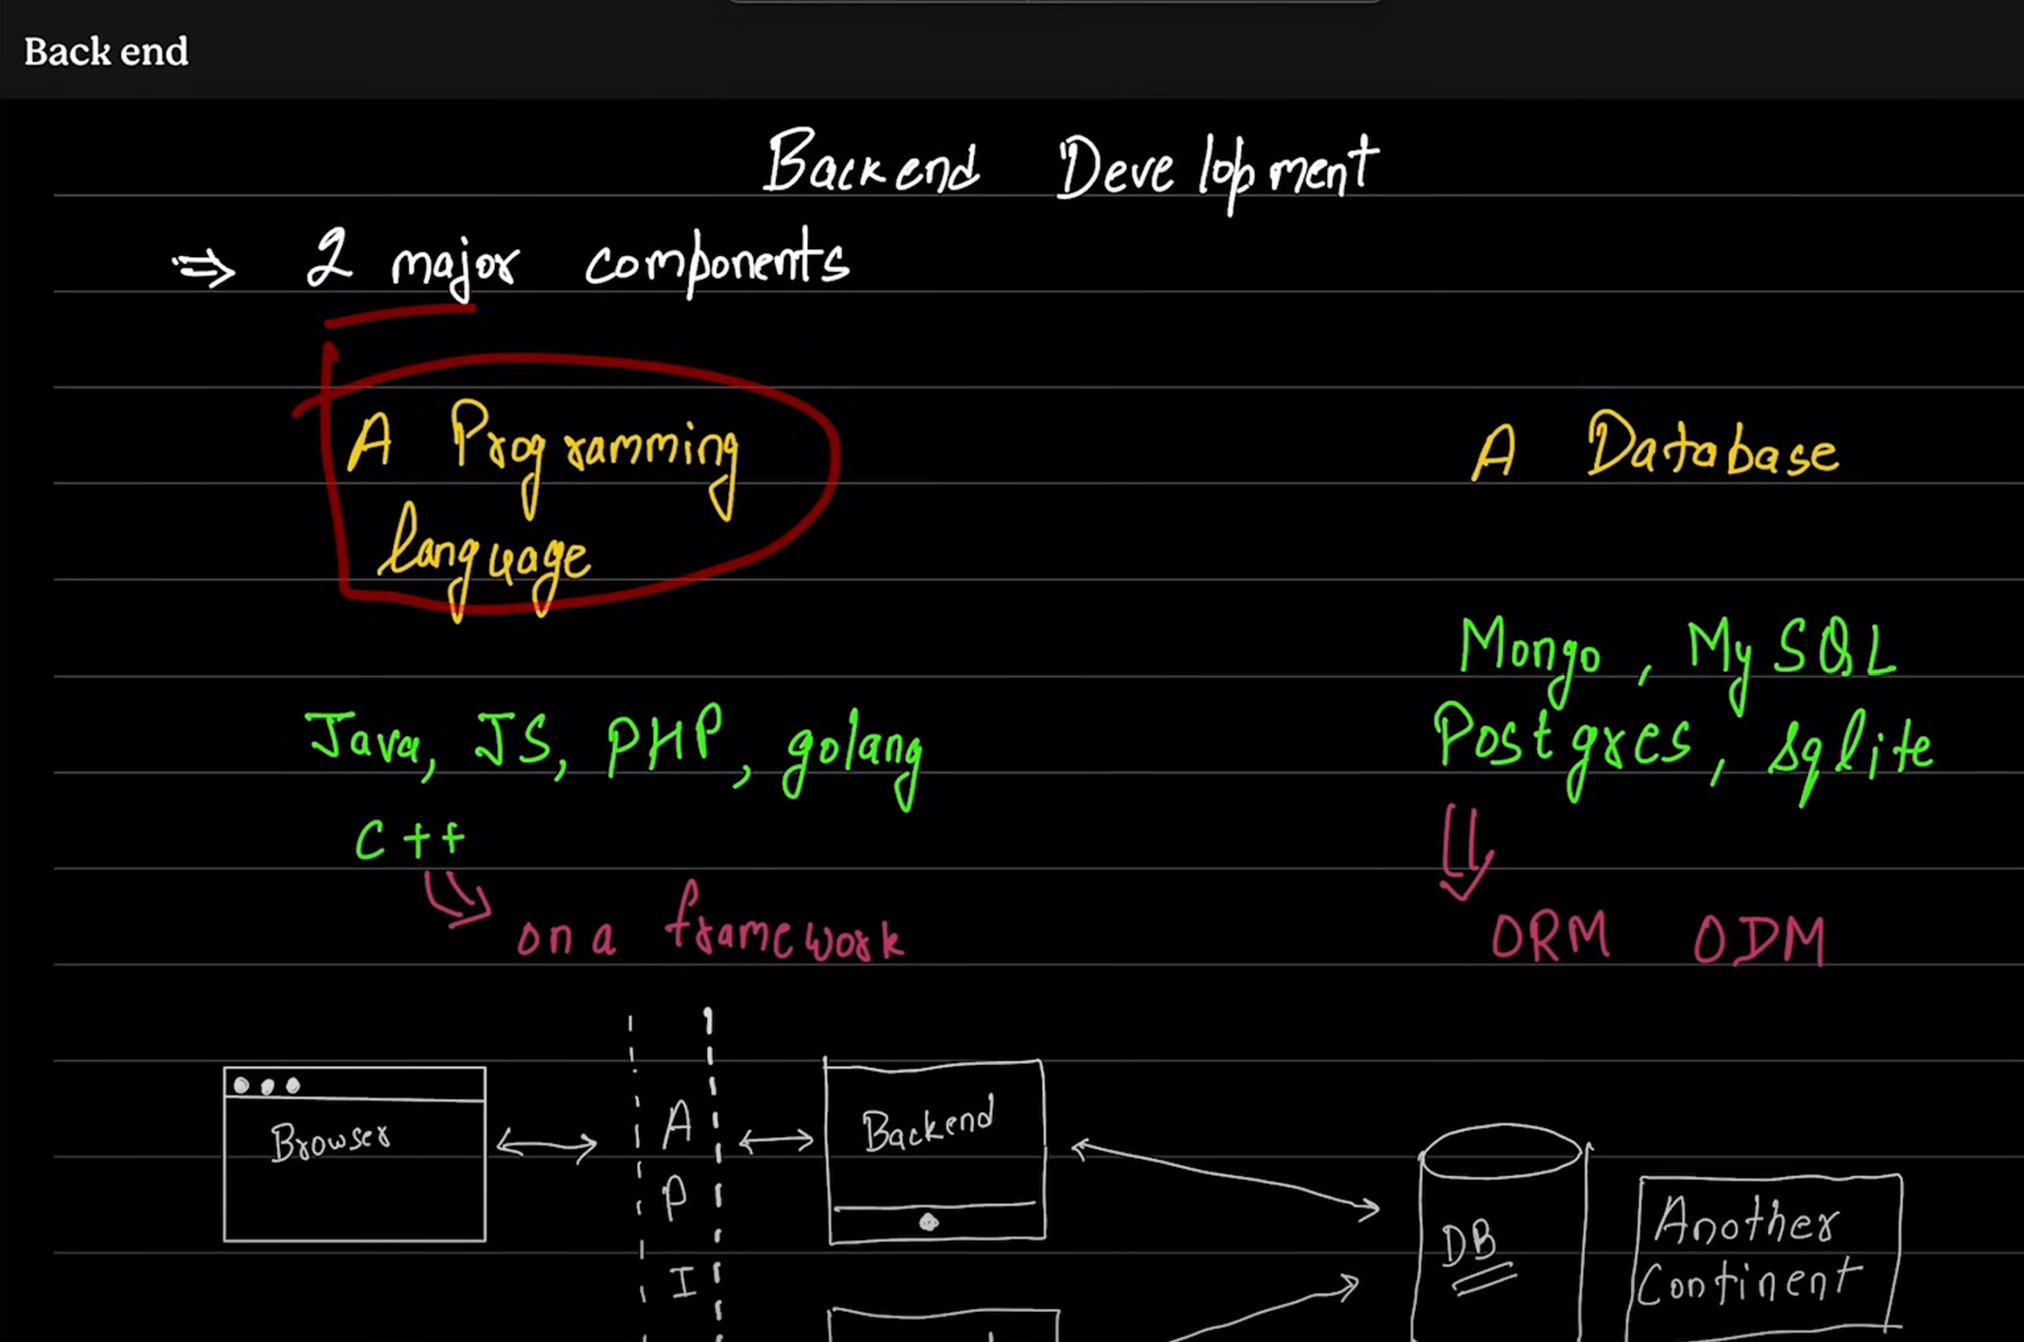 Back end
Backend Development
⇒ 2 major components
A Programming
language
A Database
Java, JS, PHP, golang
C++
on a framework
Mongo, MySQL
Postgres, sqlite
ORM ODM
Browser
A
P
I
Backend
DB
Another
Continent